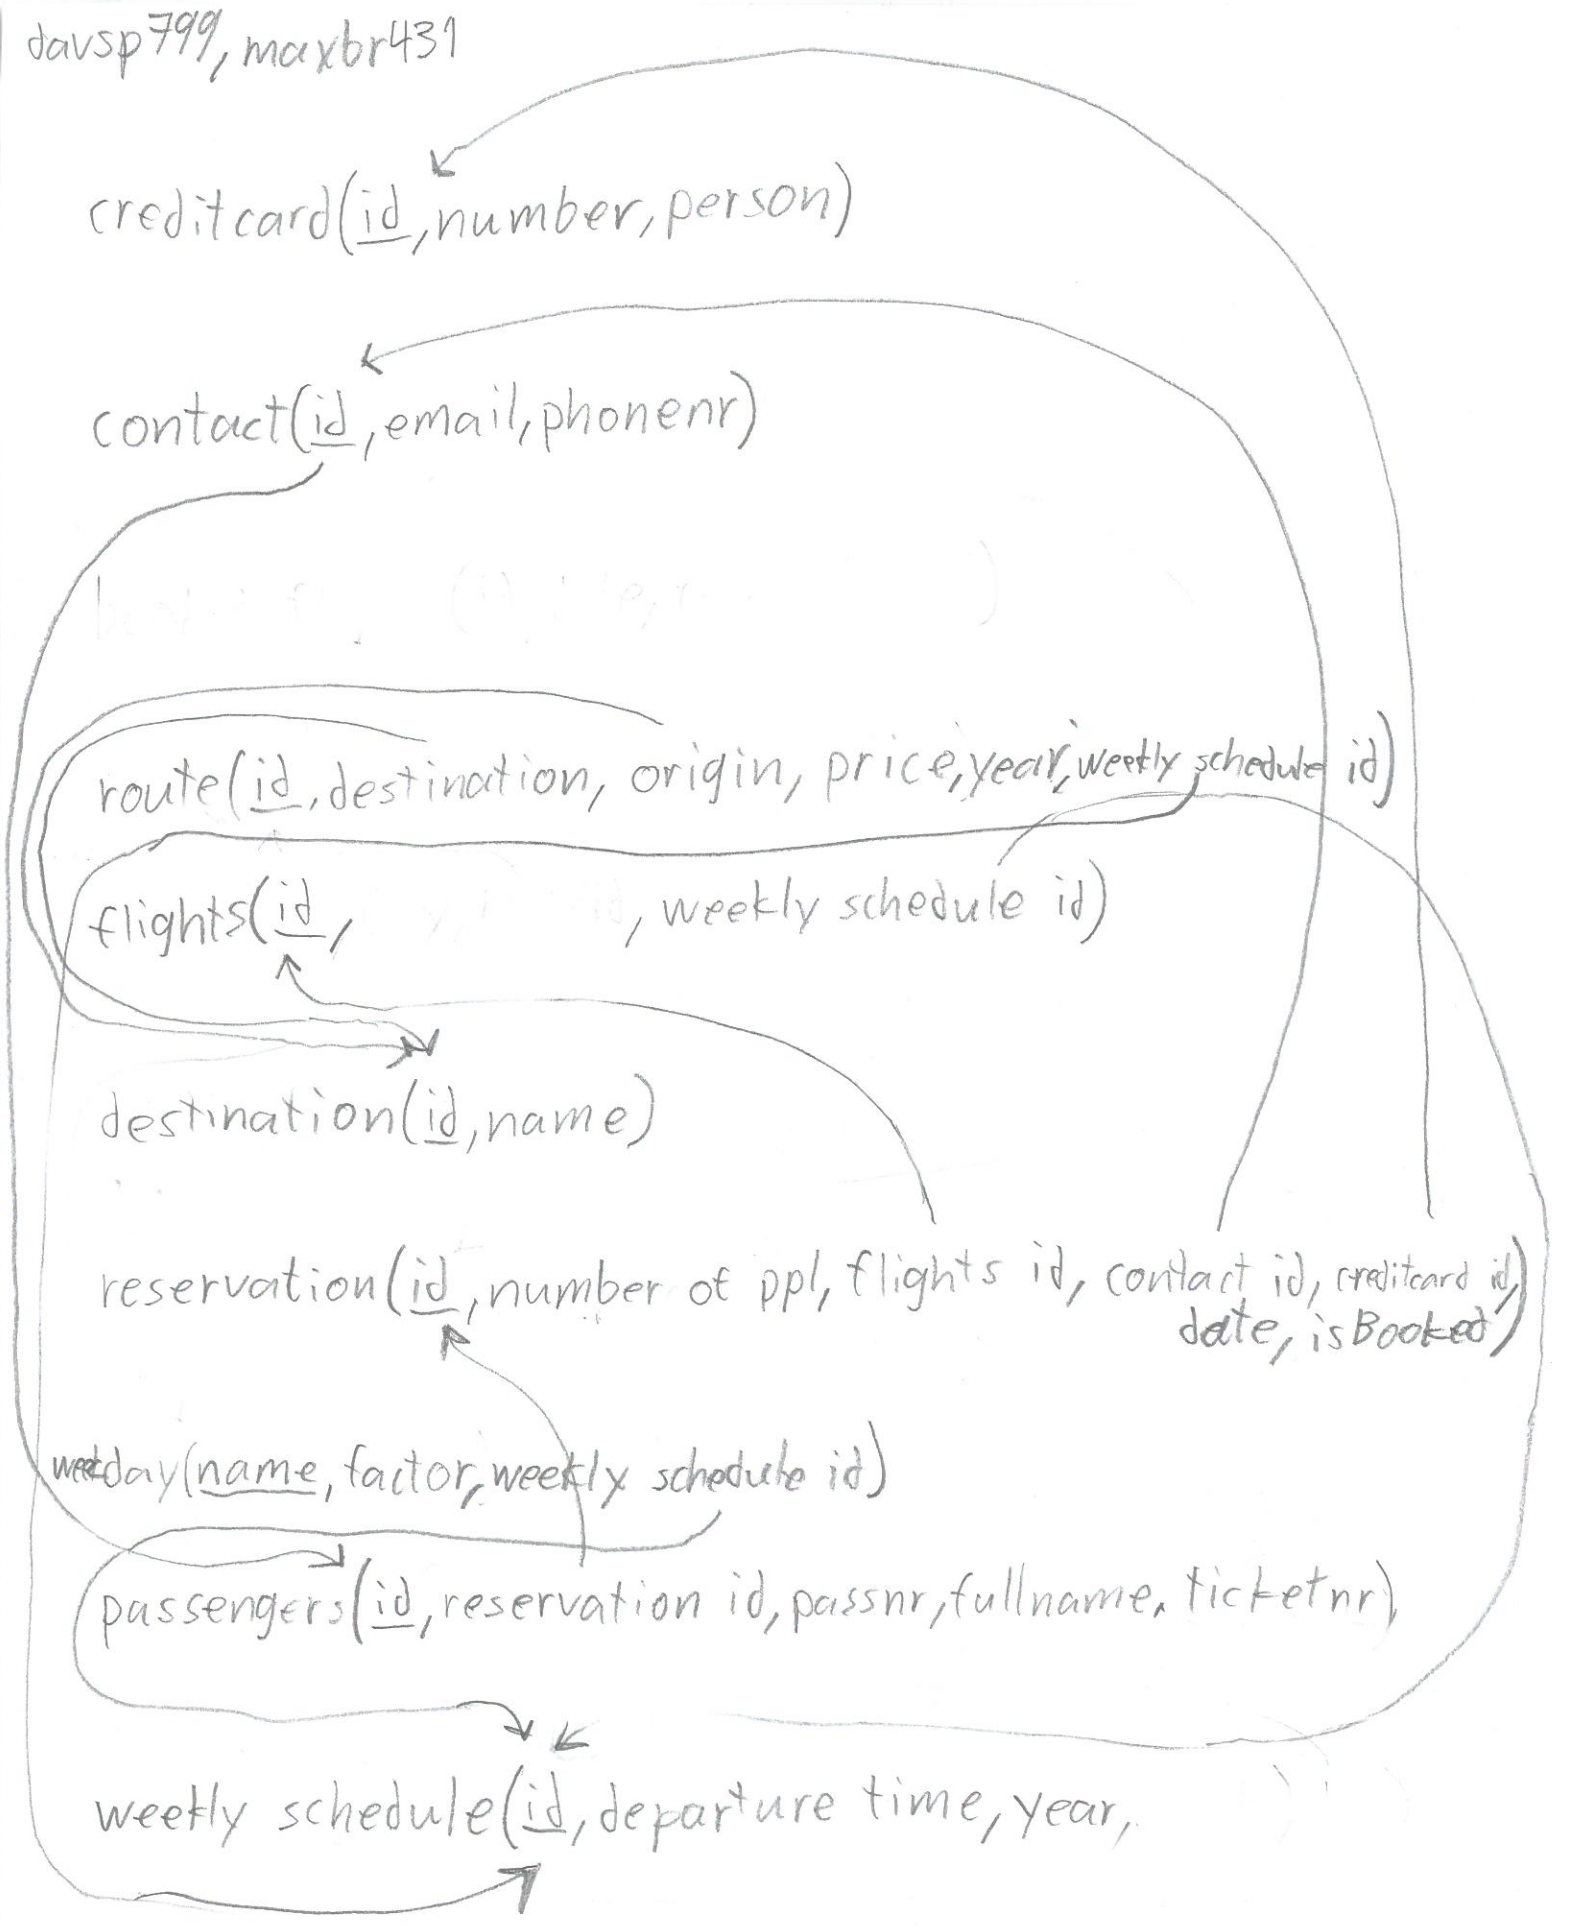 davsp799, maxbr431
creditcard(id, number, person)
contact(id, email, phonenr)
route(id, destination, origin, price, year, weekly schedule id)
flights(id, , weekly schedule id)
destination(id, name)
reservation(id, number of ppl, flights id, contact id, creditcard id,
date, isBooked)
weekday(name, factor, weekly schedule id)
passengers(id, reservation id, passnr, fullname, ticketnr)
weekly schedule(id, departure time, year,